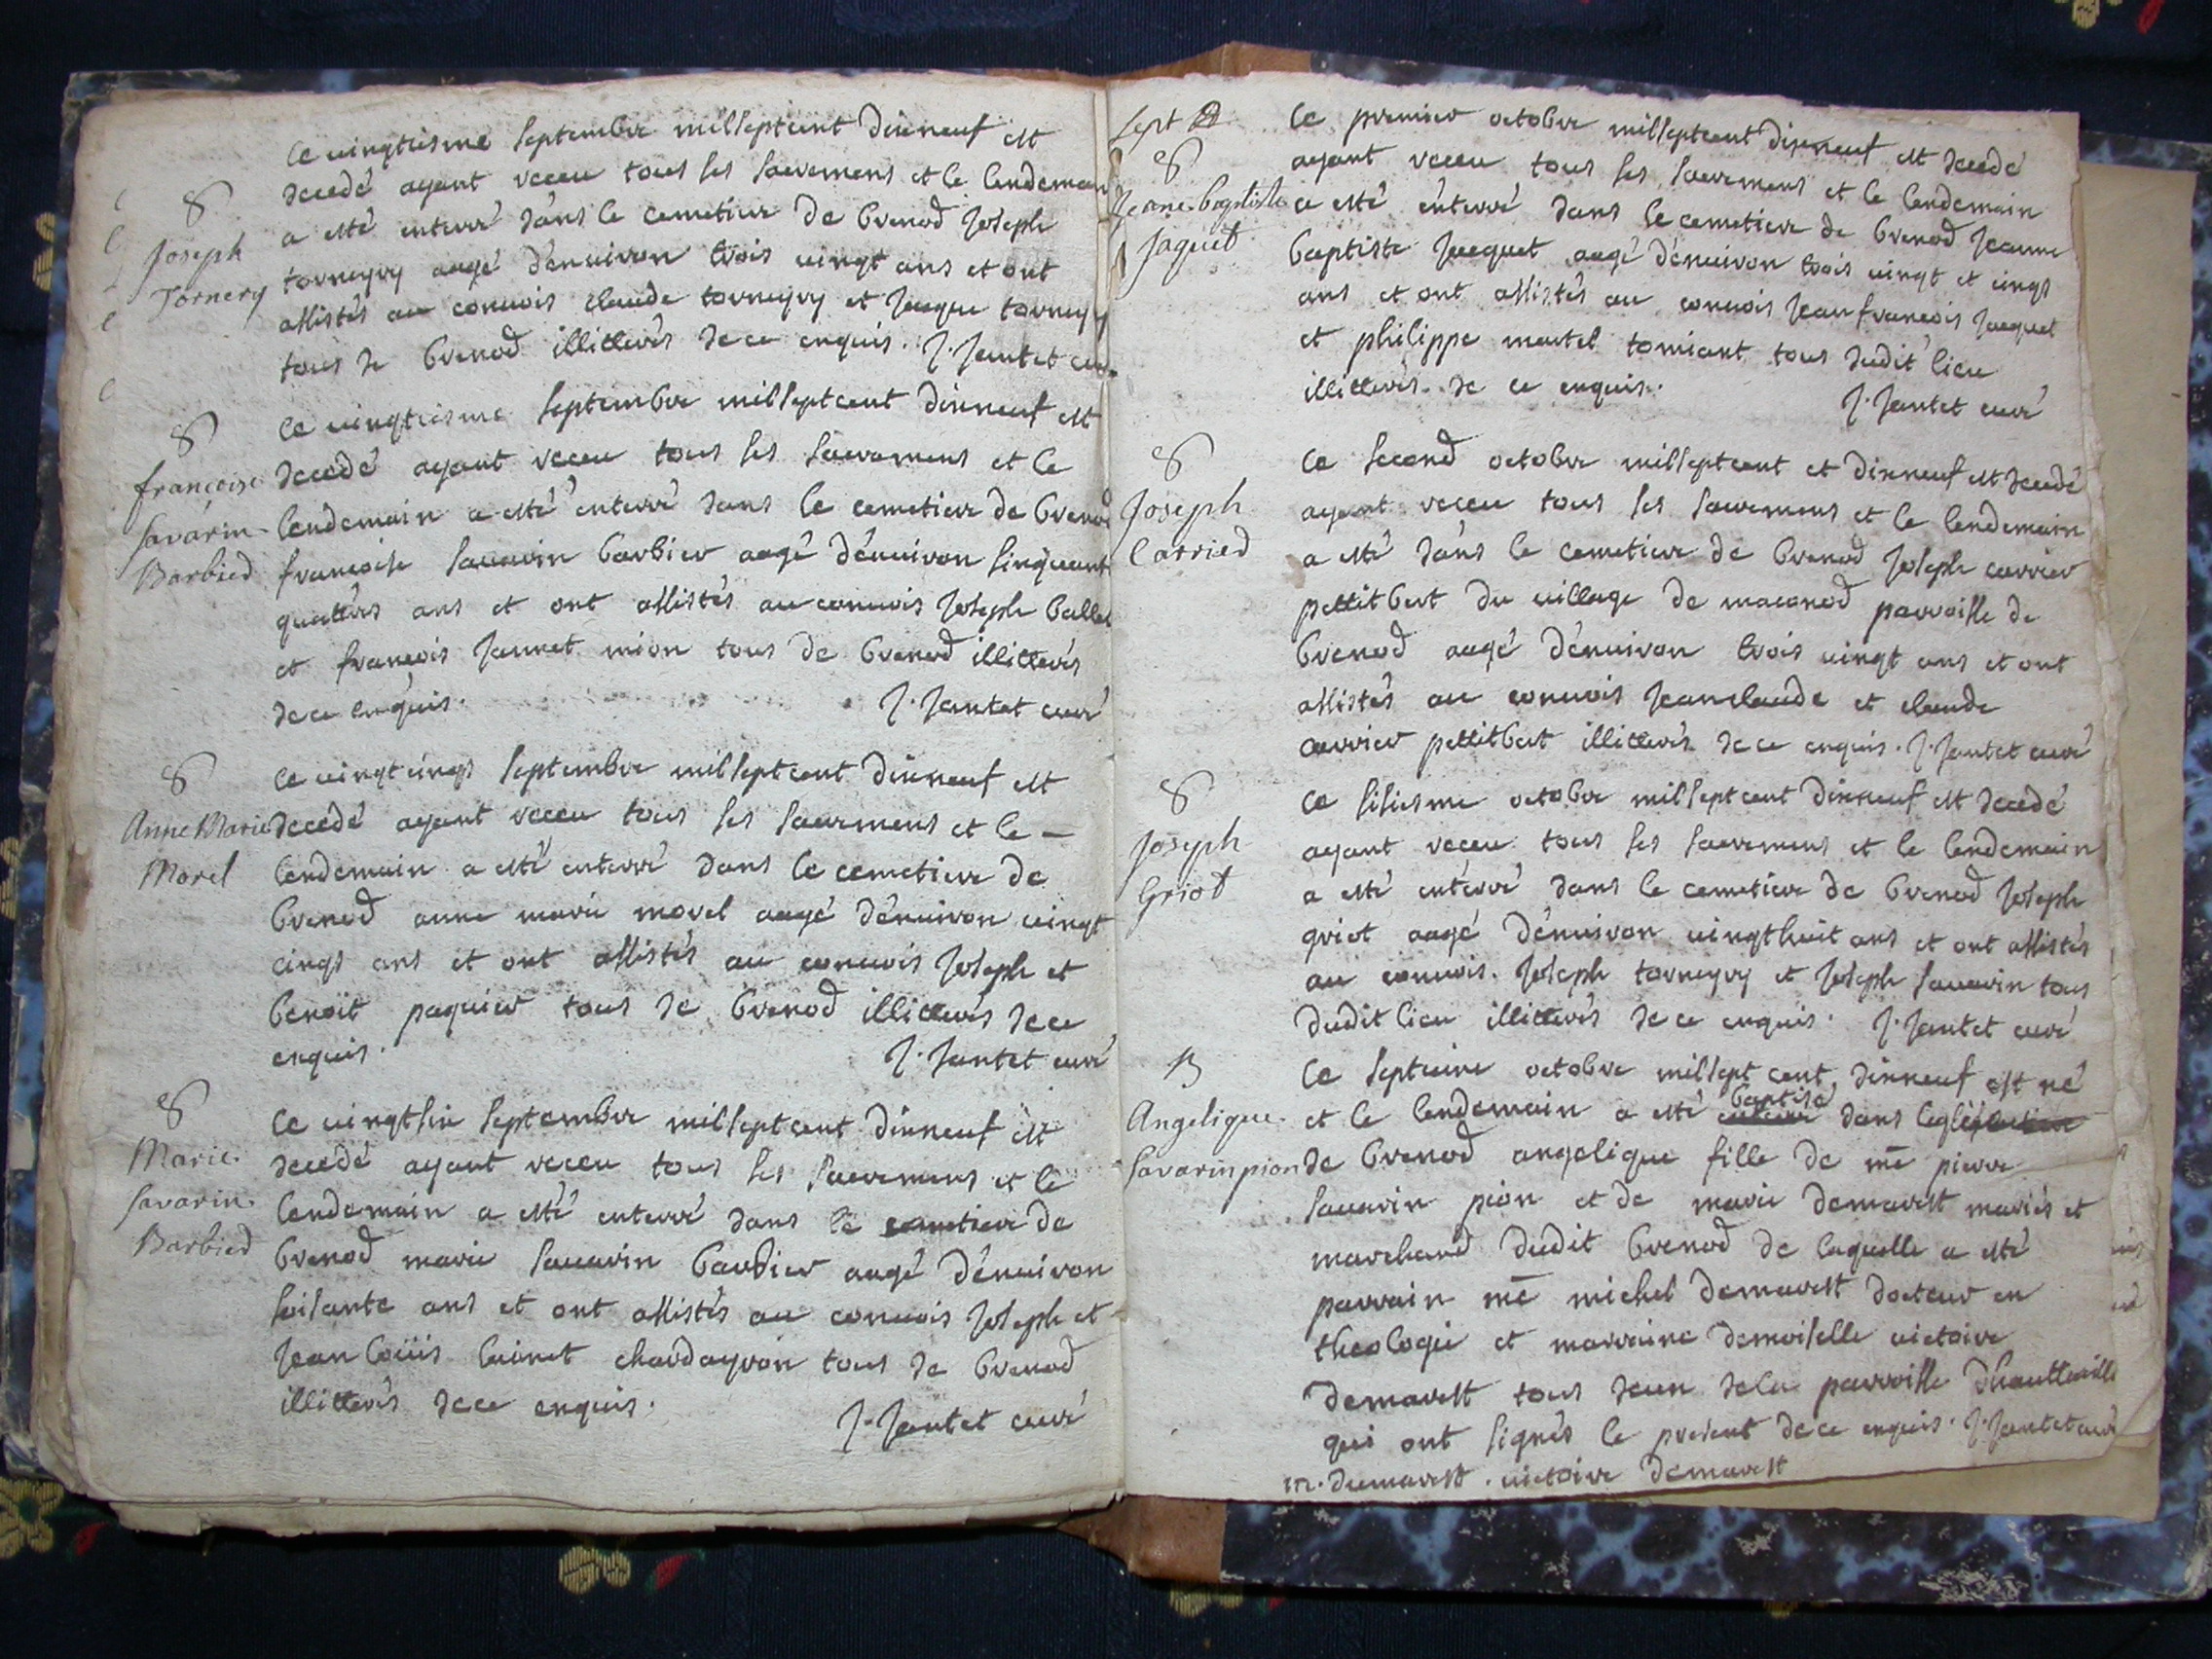 Le vingtiesme septembre milseptcent dixneuf est
8
Joseph
Tornery
decedé ayant receu tous ses sacremens et le lendemain
a esté enterré dans le cemetiere de brenod Joseph
torneyry aagé d'enuiron trois uingt ans et ont
assistés au conuois claude torneyry et Jaque torneyry
tous de brenod illitterés de ce enquis. J. Jantet curé
8
francoise
Savarin
Barbied
le vingtiesme septembre milseptcent dixneuf est
decedé ayant receu tous ses sacremens et le
lendemain a esté enterré dans le cemetiere de brenod
francoise sauarin barbier aagé d'enuiron sinquante
quattrės ans et ont assistés au conuois Joseph ballet
et francois Jannet mion tous de brenod illitterés
de ce enquis. J. Jantet curé
8
Anne Marie
Morel
le uingt cinqs septembre milseptcent dixneuf est
decedé ayant receu tous ses sacremens et le
lendemain a esté enterré dans le cemetiere de
brenod anne marie morel aagé d'enuiron uingt
cinqs ans et ont assistés au conuois Joseph et
benoit paquier tous de brenod illitterés de ce
enquis. J. Jantet curé
8
Marie
Savarin
Barbied
le uingtsix septembre milseptcent dixneuf est
decédé ayant receu tous ses sacremens et le
lendemain a esté enterré dans le cemetiere de
brenod marie sauarin barbier aagé d'enuiron
soisante ans et ont assistés au conuois Joseph et
Jean loüis chardayron tous de brenod
illitterés de ce enquis. J. Jantet curé
sept
8
Jeanne baptiste
Jaquet
le premier octobre milseptcent dixneuf est decedé
ayant receu tous ses sacremens et le lendemain
a esté enterré dans le cemetiere de brenod Jeanne
baptiste Jacquet aagé d'enuiron trois uingt et cinqs
ans et ont assistés au conuois Jean francois Jacquet
et philippe martel tous dudit lieu
illitterés de ce enquis. J. Jantet curé
8
Joseph
Carried
le second octobre milseptcent et dixneuf est decedé
ayant receu tous ses sacremens et le lendemain
a esté dans le cemetiere de brenod Joseph carrier
pettitbert du uillage de macenod parroisse de
brenod aagé d'enuiron trois uingt ans et ont
assistés au conuois Jean claude et claude
carrier pettitbert illitterés de ce enquis. J. Jantet curé
8
Joseph
Griot
le sisiesme octobre milseptcent dixneuf est decedé
ayant receu tous ses sacremens et le lendemain
a esté enterré dans le cemetiere de brenod Joseph
griot aagé d'enuiron uingthuit ans et ont assistés
au conuois Joseph torneyry et Joseph sauarin tous
dudit lieu illitterés de ce enquis. J. Jantet curé
B
Angelique
Savarin pion
le septieme octobre milsept cent dixneuf est né
et le lendemain a esté baptisé dans leglise
de brenod angelique fille de me pierre
sauarin pion et de marie demarest mariés et
marchand dudit brenod de laquelle a esté
parrain me michel demarest docteur en
theologie et marraine demoiselle uictoire
demarest tous deux de la parroisse d'hautteuille
qui ont signés le present de ce enquis. J. Jantet curé
m. dumarest. uictoire demarest